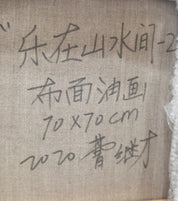 "乐在山水间-2
布面油画
70x70cm
2020 曹继才